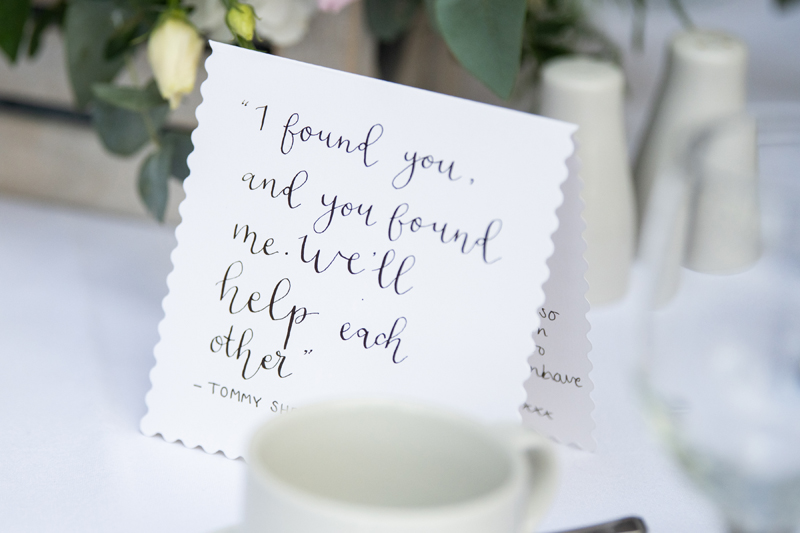 “I found you,
and you found
me. We'll
help each
other”
- TOMMY
so
n
o
xxx